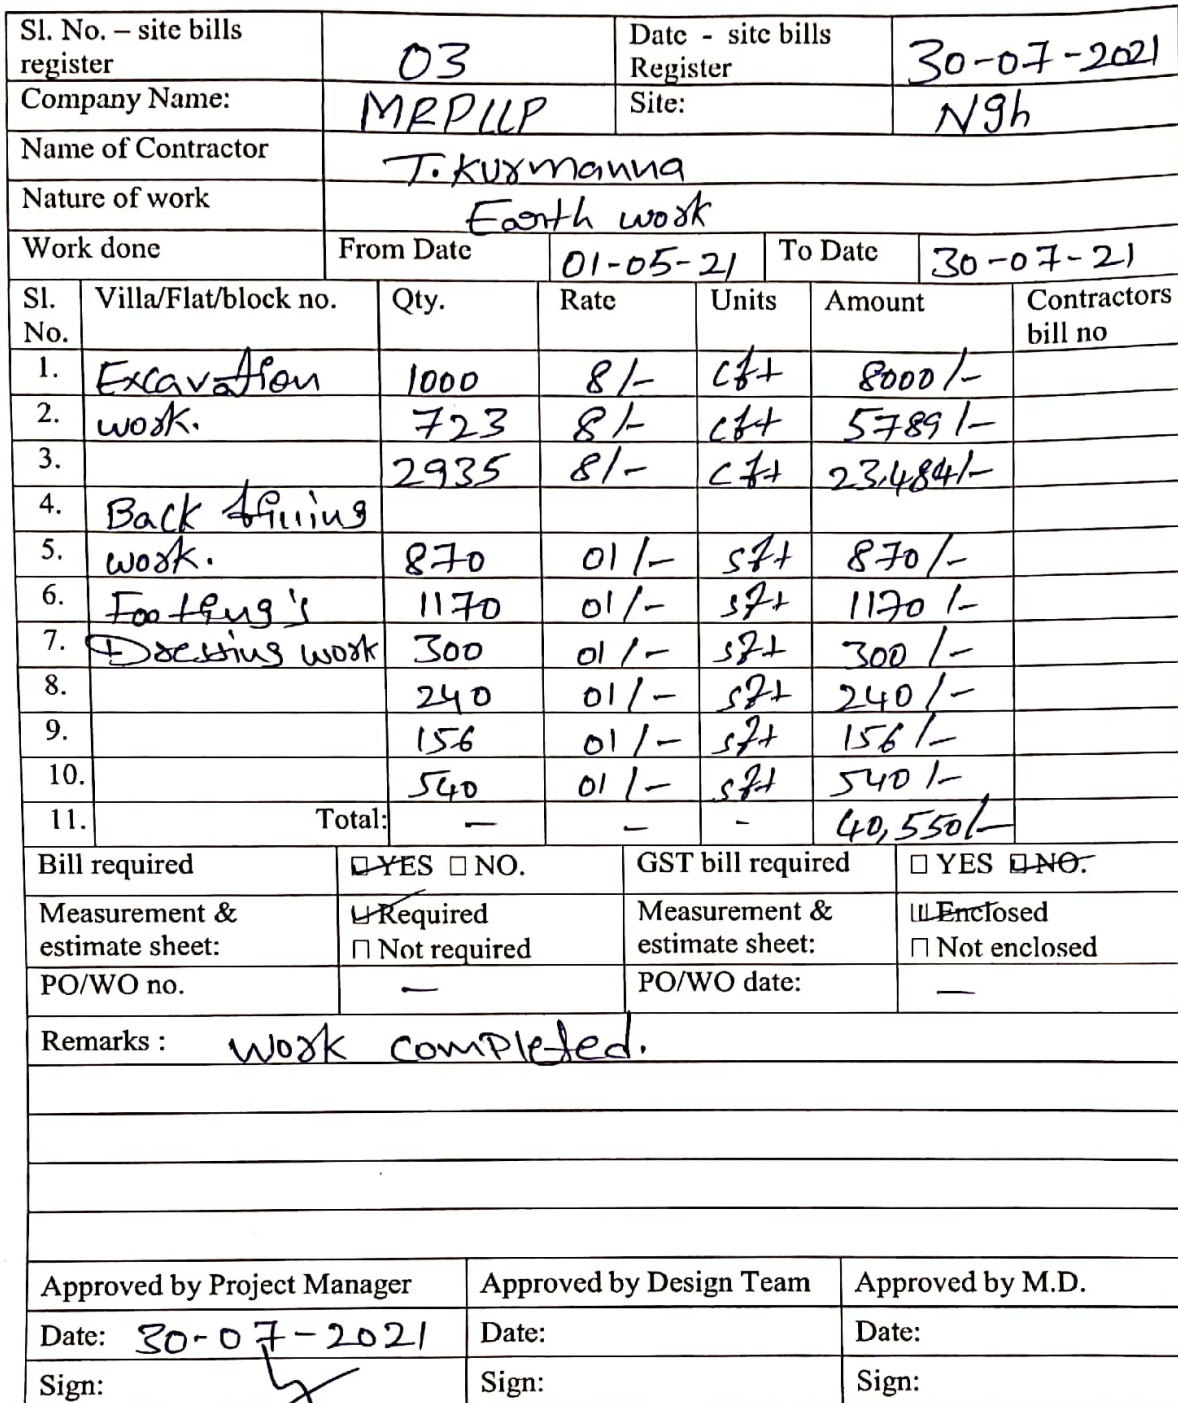 Sl. No. – site bills register 03 Date - site bills Register 30-07-2021
Company Name: MRPLLP Site: Ngh
Name of Contractor T. Kurmanna
Nature of work Earth work
Work done From Date 01-05-21 To Date 30-07-21
Sl. No. Villa/Flat/block no. Qty. Rate Units Amount Contractors bill no
1. Excavation 1000 8/- cft 8000/-
2. work. 723 8/- cft 5789/-
3. 2935 8/- cft 23,484/-
4. Back filling
5. work. 870 01/- sft 870/-
6. Footing's 1170 01/- sft 1170/-
7. Dressing work 300 01/- sft 300/-
8. 240 01/- sft 240/-
9. 156 01/- sft 156/-
10. 540 01/- sft 540/-
11. Total: – – - 40,550/-
Bill required □ YES □ NO. GST bill required □ YES □ NO.
Measurement & estimate sheet: □ Required □ Not required Measurement & estimate sheet: □ Enclosed □ Not enclosed
PO/WO no. — PO/WO date: —
Remarks : work completed.
Approved by Project Manager Approved by Design Team Approved by M.D.
Date: 30-07-2021 Date: Date:
Sign: Sign: Sign: